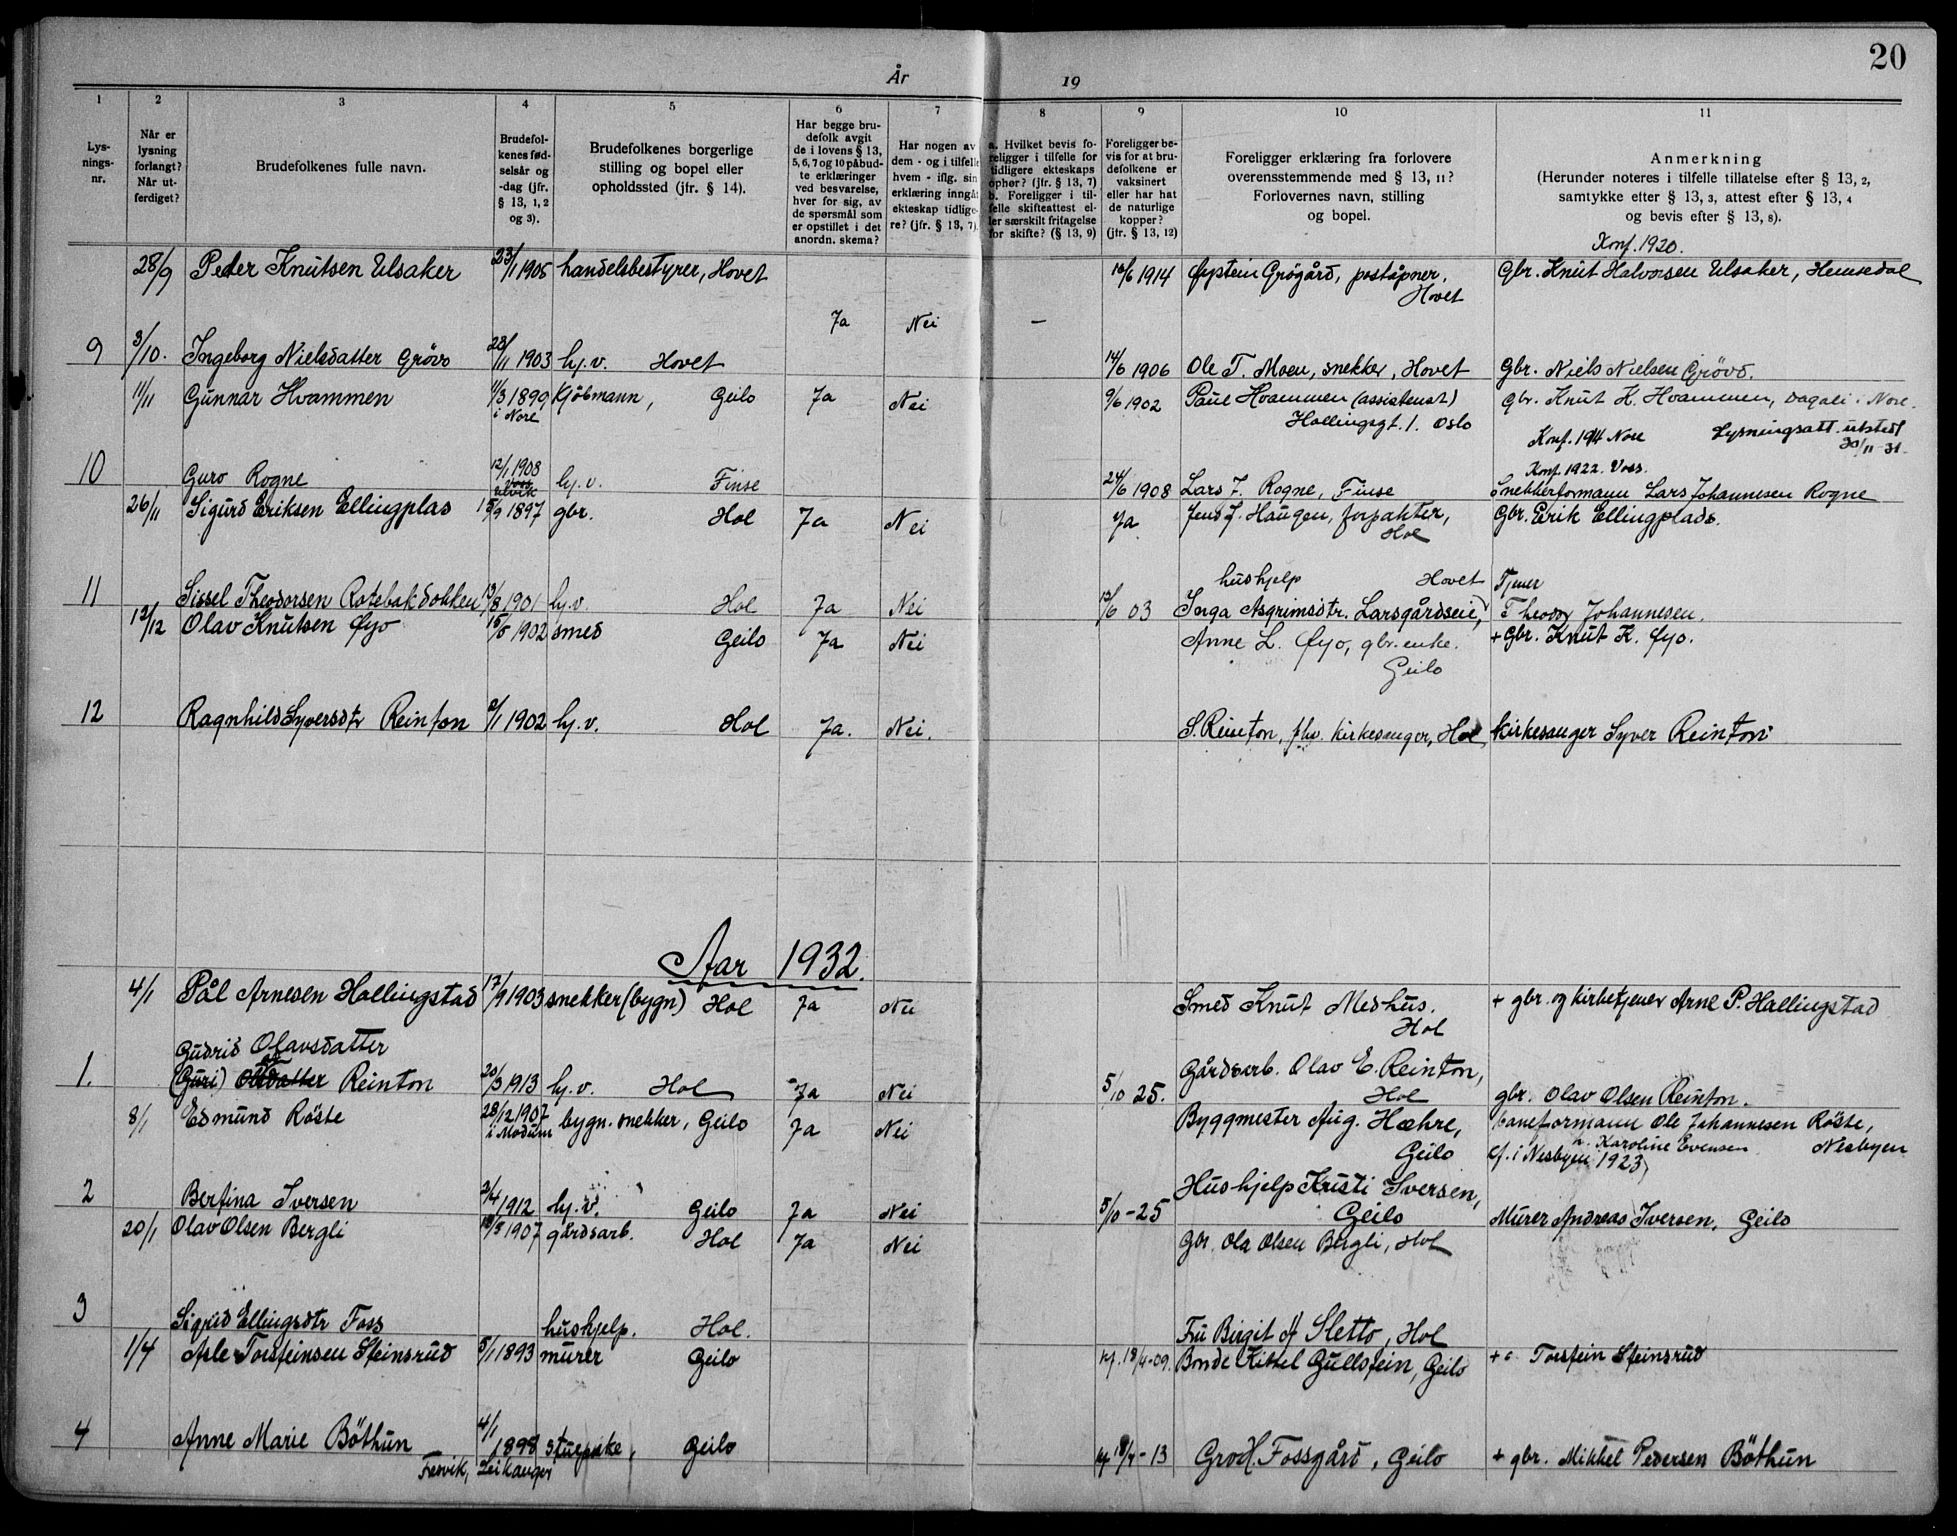 20
År 19
1 2 3 4 5 6 7 8 9 10 11
Lys-
nings-
nr.
Når er
lysning
forlangt?
Når ut-
ferdiget?
Brudefolkenes fulle navn.
Brudefol-
kenes fød-
selsår og
-dag (jfr.
§ 13, 1, 2
og 3).
Brudefolkenes borgerlige
stilling og bopel eller
opholdssted (jfr. § 14).
Har begge bru-
defolk avgit
de i lovens § 13,
5, 6, 7 og 10 påbud-
te erklæringer
ved besvarelse,
hver for sig, av
de spørsmål som
er opstillet i det
anordn. skema?
Har nogen av
dem - og i tilfelle
hvem - iflg. sin
erklæring inngåt
ekteskap tidlige-
re? (jfr. § 13, 7).
a. Hvilket bevis fo-
religger i tilfelle for
tidligere ekteskaps
ophør? (jfr. § 13, 7)
b. Foreligger i til-
felle skifteattest el-
ler særskilt fritagelse
for skifte? (§ 13, 9)
Foreligger be-
vis for at bru-
defolkene er
vaksinert
eller har hat
de naturlige
kopper?
(jfr. § 13, 12)
Foreligger erklæring fra forlovere
overensstemmende med § 13, 11?
Forlovernes navn, stilling
og bopel.
Anmerkning
(Herunder noteres i tilfelle tillatelse efter § 13, 2,
samtykke efter § 13, 3, attest efter § 13, 4
og bevis efter § 13, 8).
Konf. 1920.
28/9 Peder Knutsen Ulsaker 23/1 1905 handelsbestyrer, Hovet 6 1914 Øystein Grögård, poståpner, Gbr. Knut Halvorsen Ulsaker, Hemsedal
Hovet
Ja Nei —
9 3/10. Ingeborg Nielsdatter Grövo 28/11 1903 hj.v. Hovet 14/6 1906 Ole T. Moen, snekker, Hovet Gbr. Niels Nielsen Grövo.
11/11 Gunnar Hvammen 11/3 1899 Kjöbmann, Geilo Ja Nei 9/6 1902 Paul Hvammen (assistent) Gbr. Knut K. Hvammen, Dagali i Nore.
i Nore Hallingsgt. 1. Oslo
Konf. 1914 Nore Lysningsatt. utstedt
30/11-31.
Konf. 1922. Voss.
10 Guro Rogne 12/1 1908 hj.v. Finse 24/6 1908 Lars J. Rogne, Finse Snekkerformann Lars Johannesen Rogne
Voss
Ulvik
26/11 Sigurd Eriksen Ellingplas 15/9 1897 gbr. Hol Ja Nei Ja Jens J. Haugen, forpakter, Gbr. Erik Ellingplads.
Hol
hushjelp Hovet Tjener
11 Sissel Theodorsen Rotebakdokken 13/8 1901 hj.v. Hol Ja Nei 6 03 Inga Asgrimsdtr. Larsgårdseie, Theodor Johannesen.
12/12 Olav Knutsen Øyo 1902 smed Geilo Ja Nei Anne L. Øyo, gbr.enke. + Gbr. Knut K. Øyo.
Geilo
12 Ragnhild Syversdtr Reinton 2/1 1902 hj.v. Hol Ja. Nei. S. Reinton, fhv. kirkesanger, Hol kirkesanger Syver Reinton
Aar 1932.
4/1 Pål Arnesen Hallingstad 17/9 1903 snekker (bygn) Hol Ja Nei Smed Knut Medhus. + gbr. og kirketjener Arne P. Hallingstad
Hol
Gudrid Olavsdatter
1. (Guri) Olsdatter Reinton 20/3 1913 hj.v. Hol Ja Nei 5/10 25. Gårdsarb. Olav E. Reinton, gbr. Olav Olsen Reinton.
Hol
8/1 Edmund Röste 28/12 1907 bygn. snekker, Geilo Ja Nei Byggmester Aug. Hæhre, baneformann Ole Johannesen Röste,
i Modum Geilo Karoline Evensen Nesbyen
cf. i Nesbyen 1923)
2 Bertina Iversen 2/4 1912 hj.v. Geilo Ja Nei 5/10-25 Hushjelp Kristi Iversen, Murer Andreas Iversen, Geilo
Geilo
20/1 Olav Olsen Bergli 1907 gårdsarb. Hol Ja Nei Gbr. Ola Olsen Bergli, Hol
3 Sigrid Ellingsdtr Foss hushjelp. Hol. Fru Birgit A Sletto, Hol
1/4 Asle Torsteinsen Steinsrud 5/1 1893 murer Geilo 18/4-09. Bonde Kittel Gullstein, Geilo + Torstein Steinsrud
4 Anne Marie Böthun 4/1 1898 stuepike, Geilo 18/4-13 Gro H. Fossgård, Geilo + gbr. Mikkel Pedersen Böthun
Fesvik, Leikanger